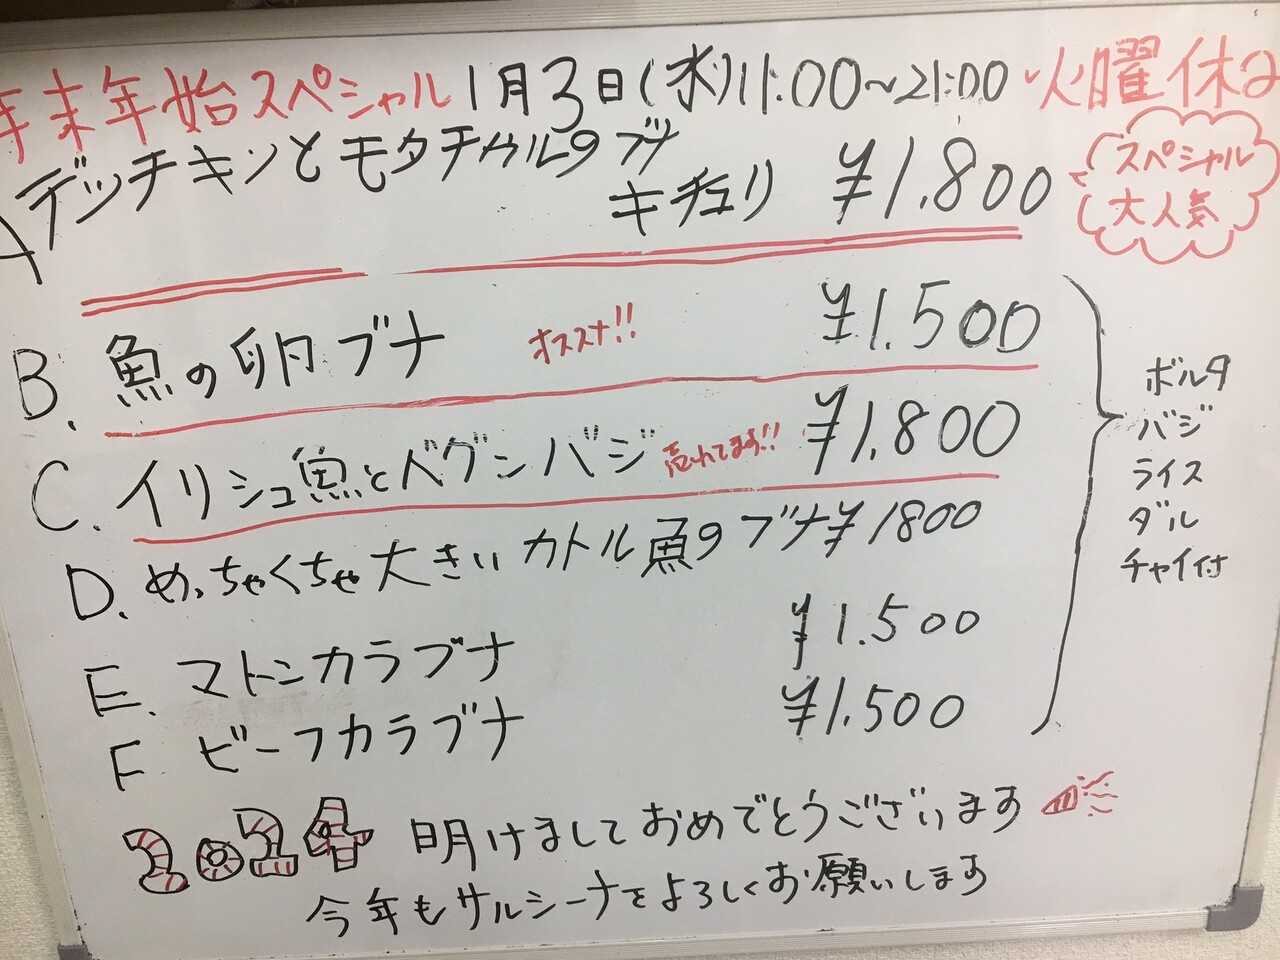 年末年始スペシャル 1月3日(水)11:00~21:00 火曜休み
A デッチキンとモタチウルのブナ
キチュリ ¥1.800
スペシャル
大人気
B. 魚の卵ブナ オススメ!! ¥1.500
C. イリシュ魚とベグンバジ 売れてます!! ¥1.800
D. めっちゃくちゃ大きいカトル魚のブナ ¥1800
E. マトンカラブナ ¥1.500
F ビーフカラブナ ¥1.500
ボルタ
バジ
ライス
ダル
チャイ付
2024 明けましておめでとうございます
今年もサルシーナをよろしくお願いします